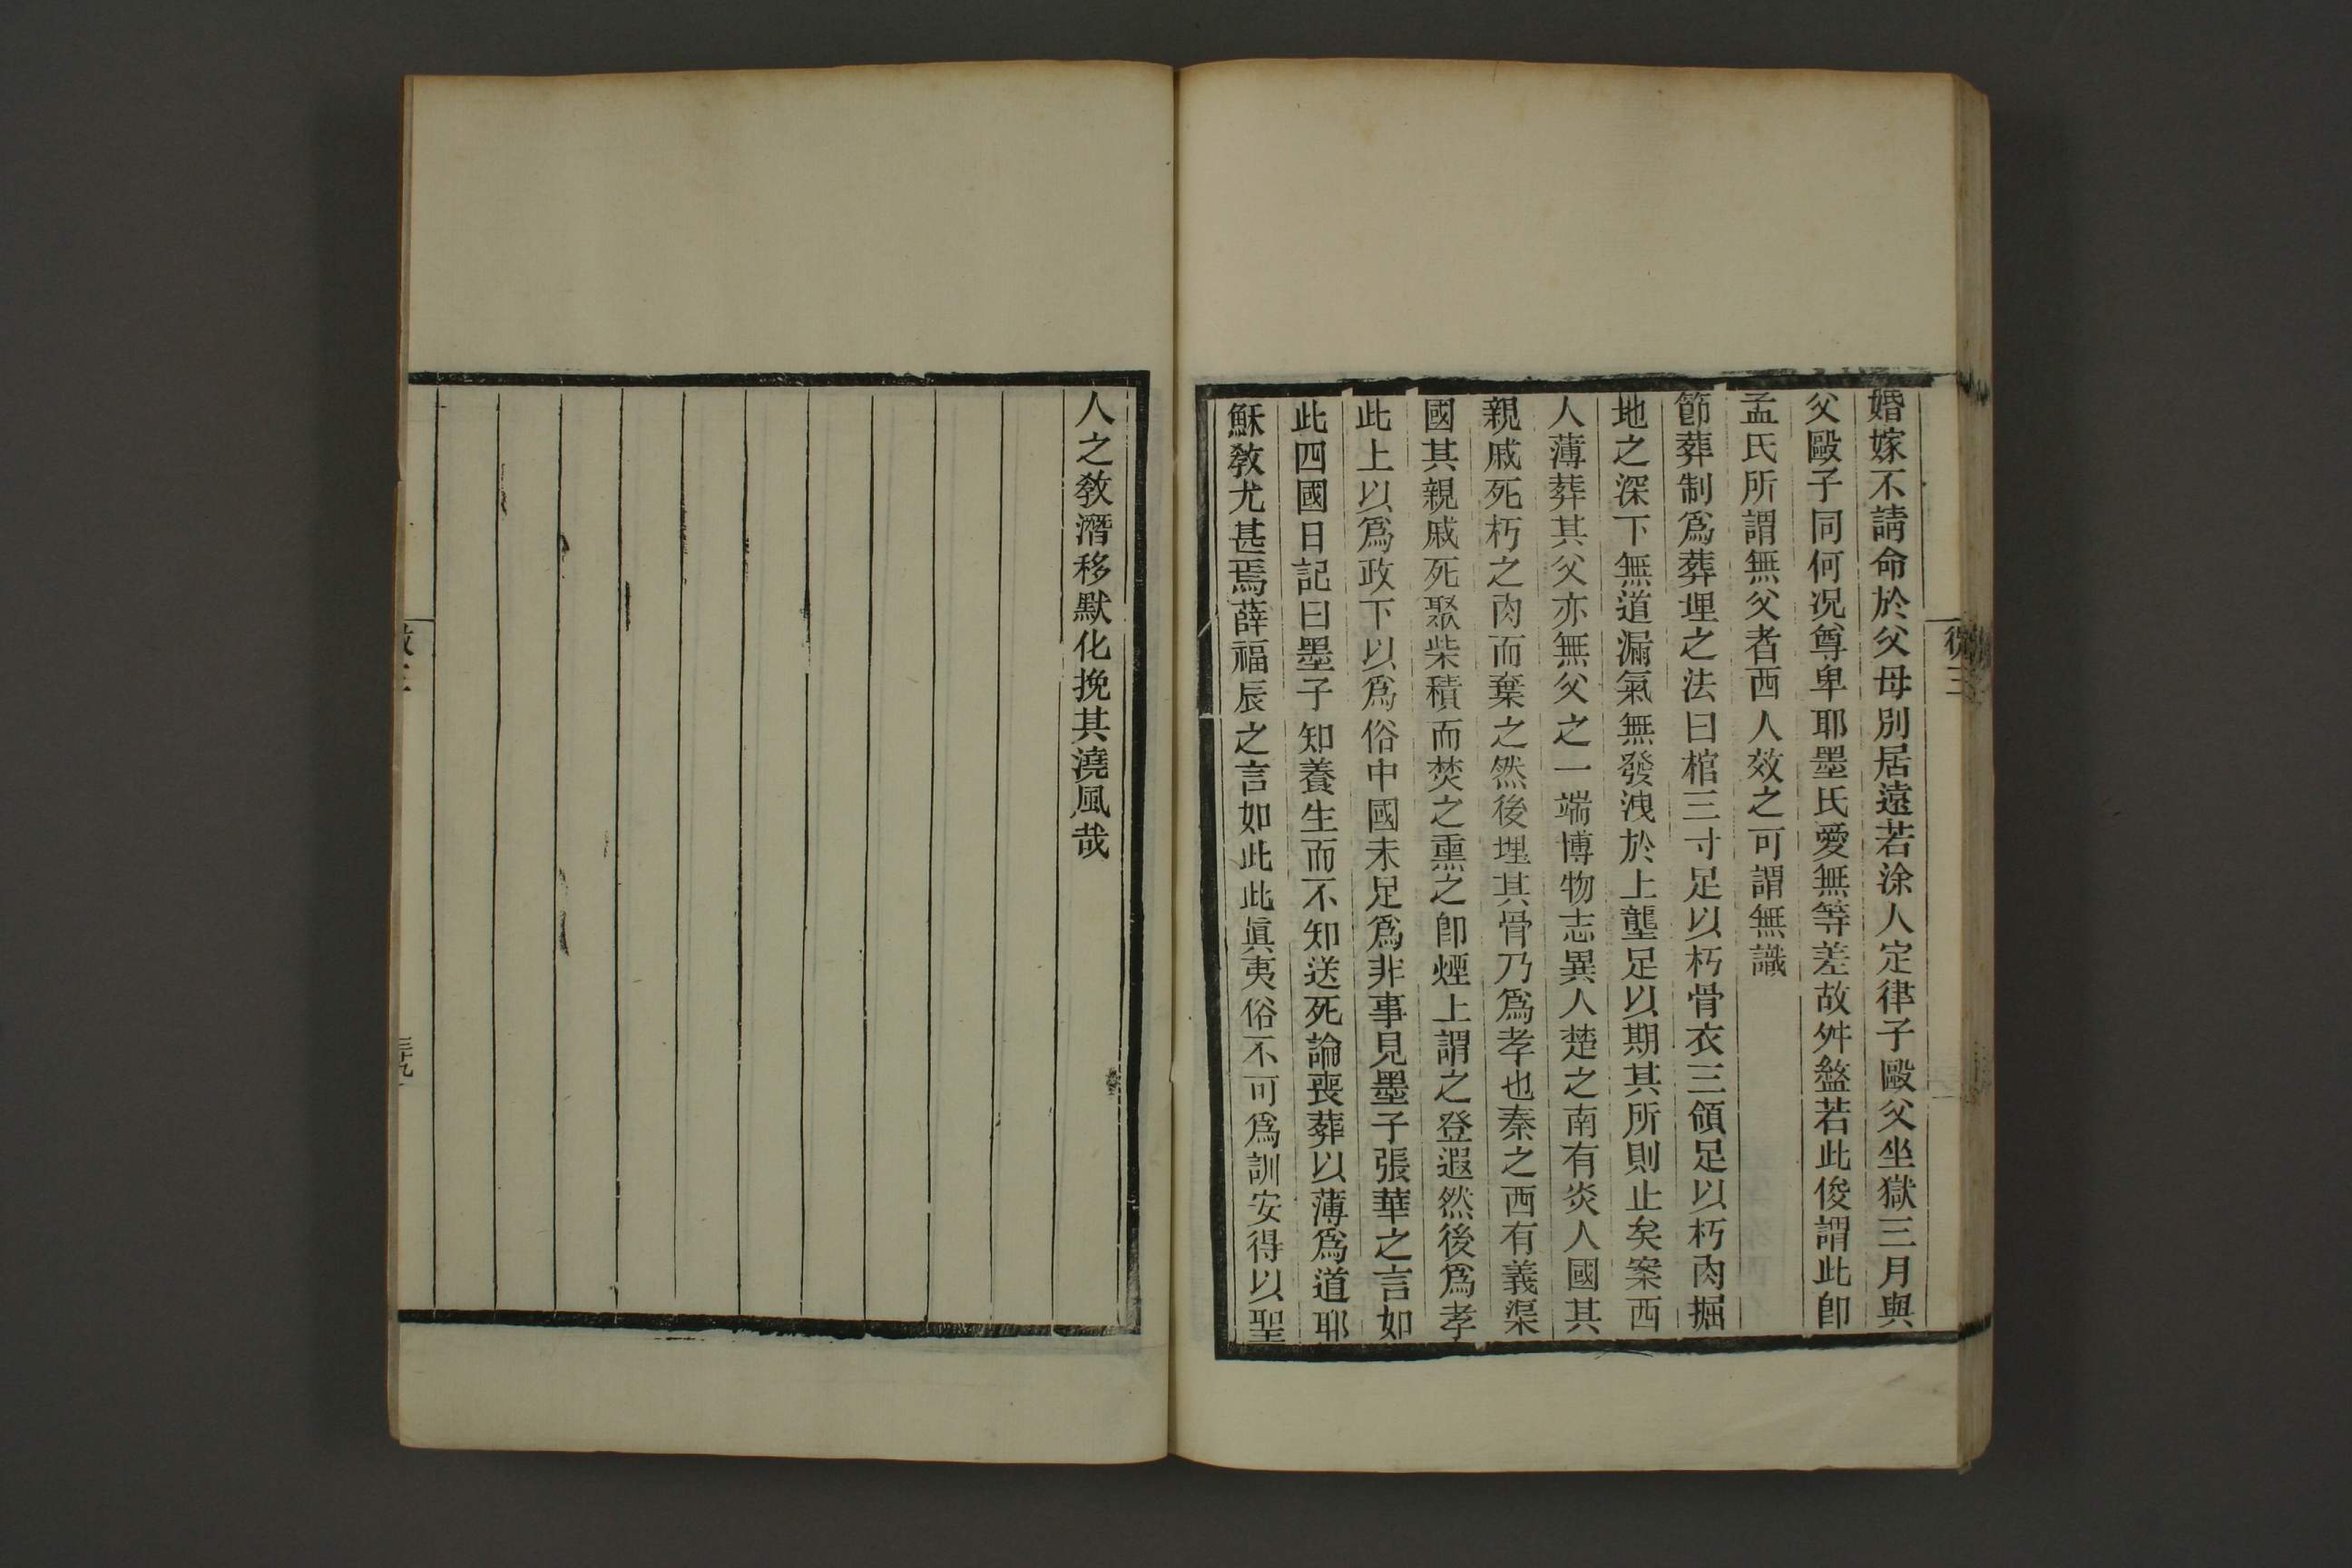 婚嫁不請命於父母別居遠若涂人定律子毆父坐獄三月與
父毆子同何況尊卑耶墨氏愛無等差故舛盭若此俊謂此卽
孟氏所謂無父者西人效之可謂無識
節葬制爲葬埋之法曰棺三寸足以朽骨衣三領足以朽肉掘
地之深下無道漏氣無發洩於上壟足以期其所則止矣案西
人薄葬其父亦無父之一端博物志異人楚之南有炎人國其
親戚死朽之肉而棄之然後埋其骨乃爲孝也秦之西有義渠
國其親戚死聚柴積而焚之熏之卽煙上謂之登遐然後爲孝
此上以爲政下以爲俗中國未足爲非事見墨子張華之言如
此四國日記曰墨子知養生而不知送死論喪葬以薄爲道耶
穌教尤甚焉薛福辰之言如此此眞夷俗不可爲訓安得以聖
人之教潛移默化挽其澆風哉
三十九